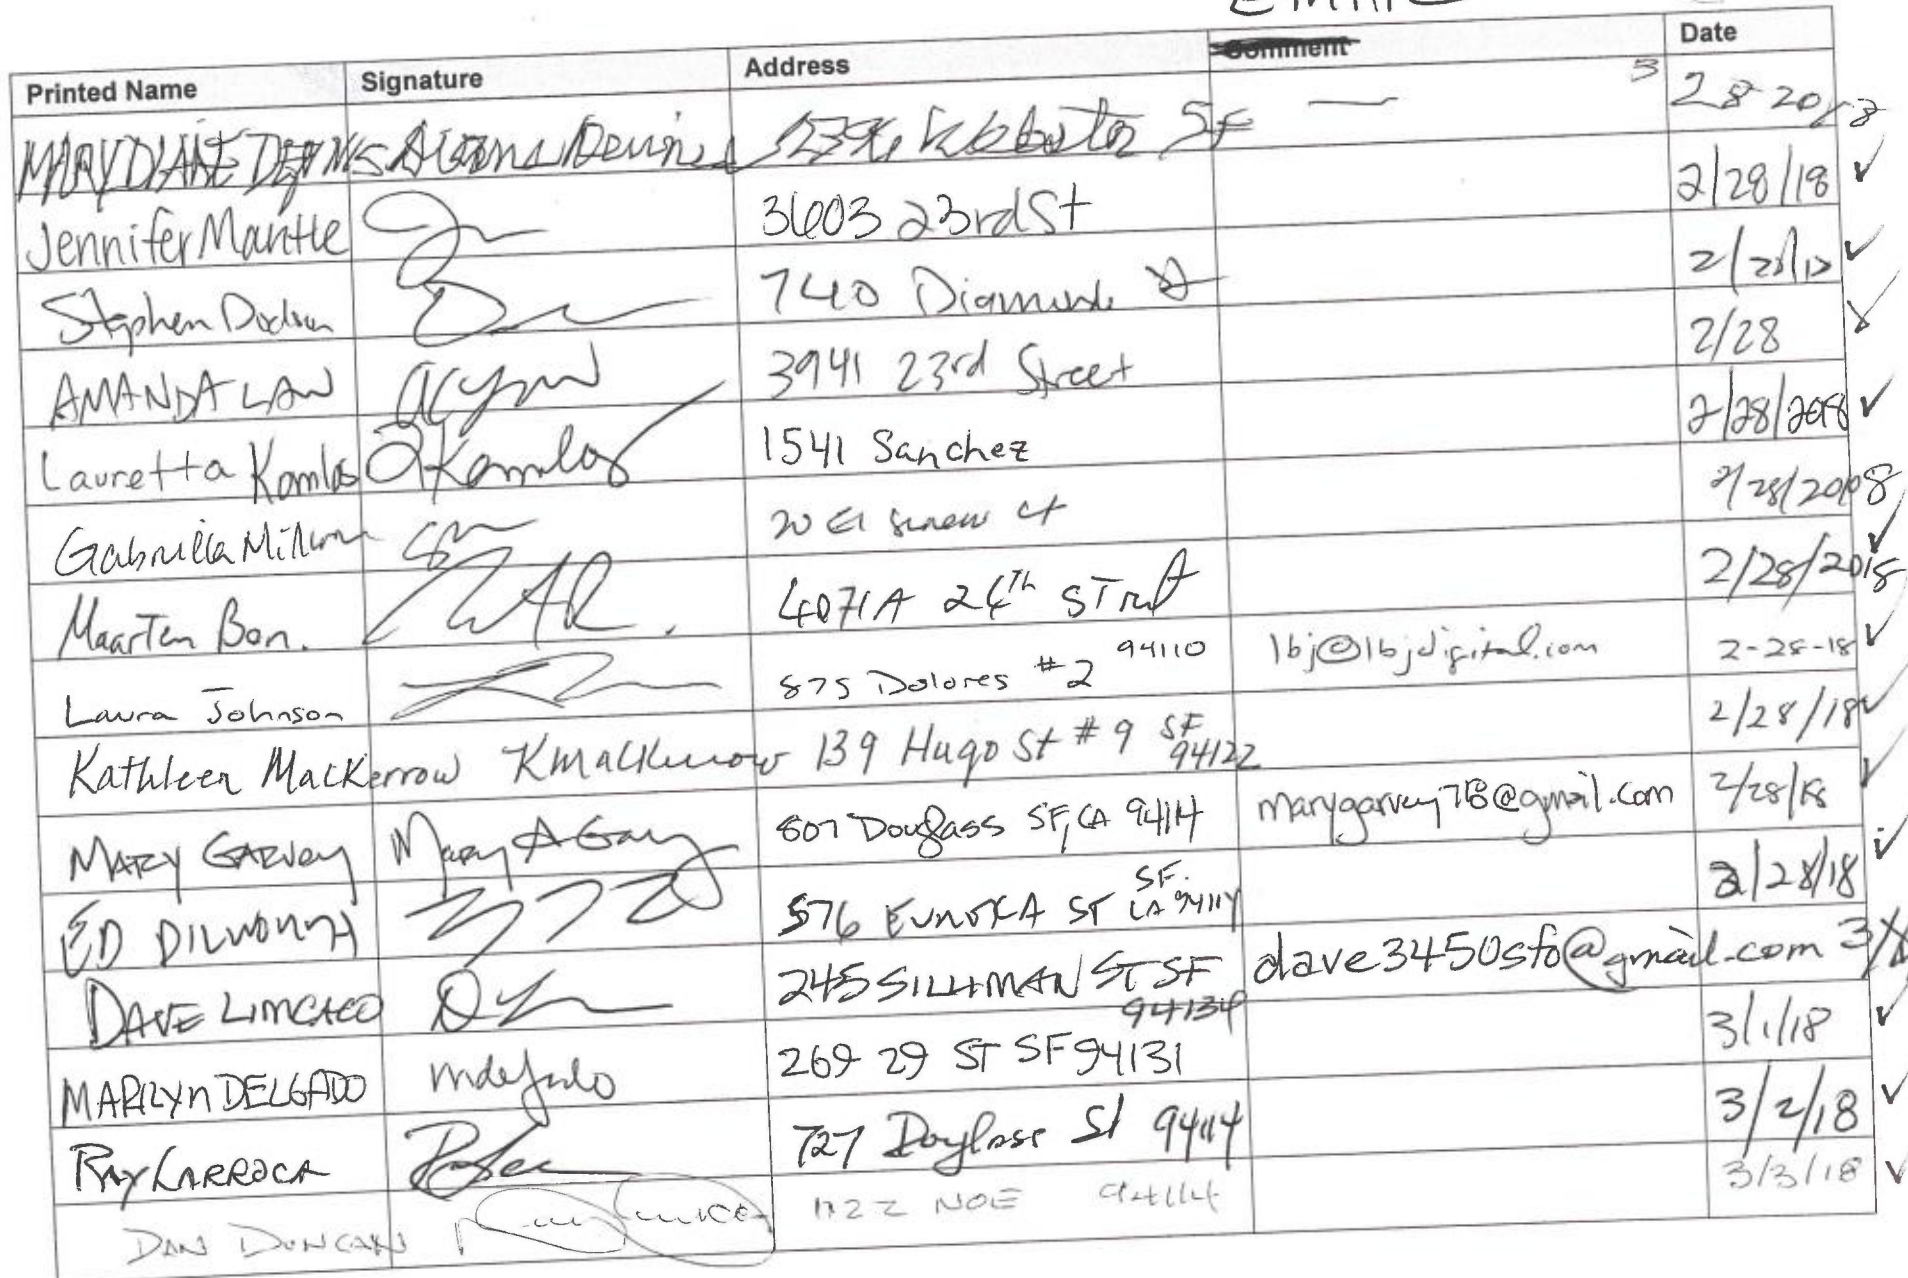 EMAIL
Printed Name Signature Address Comment Date
MARY DIANE Webster SF — 28 2018
Jennifer Mantle 3603 23rd St 2/28/18 ✓
Stephen Dodson 740 Diamond St 2/28/18 ✓
AMANDA LAW 3941 23rd Street 2/28
Lauretta Komlos LKomlos 1541 Sanchez 2/28/2018 ✓
Gabriella 20 El ct 2/28/2008
Maarten Bon. 4071A 24Th STreet 2/28/2018 ✓
Laura Johnson 875 Dolores #2 94110 lbj@lbjdigital.com 2-28-18 ✓
Kathleen MacKerrow KMacKerrow 139 Hugo St #9 SF 94122 2/28/18 ✓
MARY GARVEY Mary A Garvey 807 Douglass SF, CA 94114 marygarvey718@gmail.com 2/28/18 ✓
ED DILWORTH 576 EUREKA ST SF. CA 94114 2/28/18 ✓
DAVE LIMCACO 245 SILLIMAN ST SF 94134 dave3450sfo@gmail.com
MARILYN DELGADO mdelgado 269 29 ST SF 94131 3/1/18 ✓
RAY CARROCA 727 Douglass St 94114 3/2/18 ✓
DAN DUNCAN 1122 NOE 94114 3/3/18 ✓